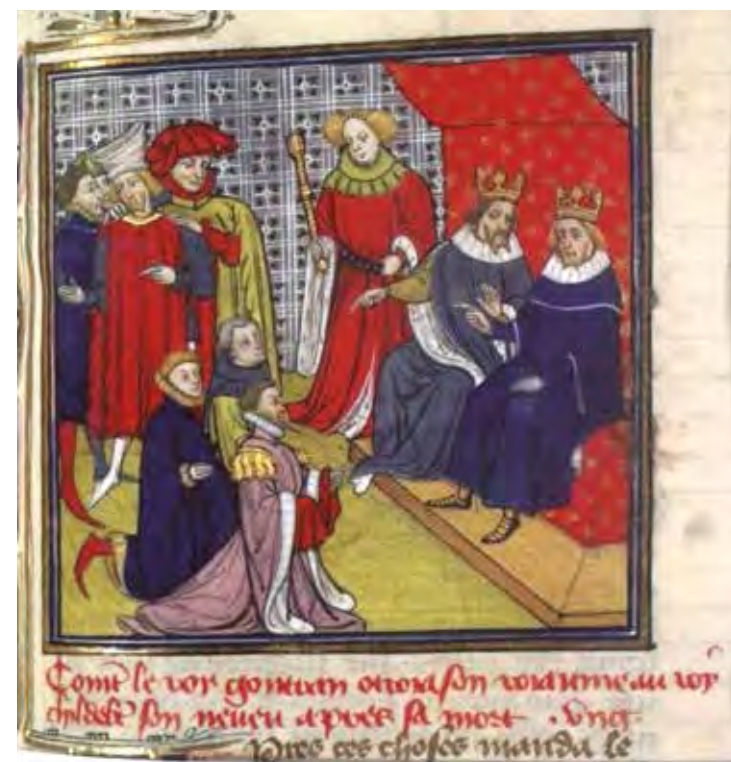 Comẽ le roy gontran otroia son roiaume au roy
childebt son neueu apres sa mort . Vng .
Pres ces choses manda le